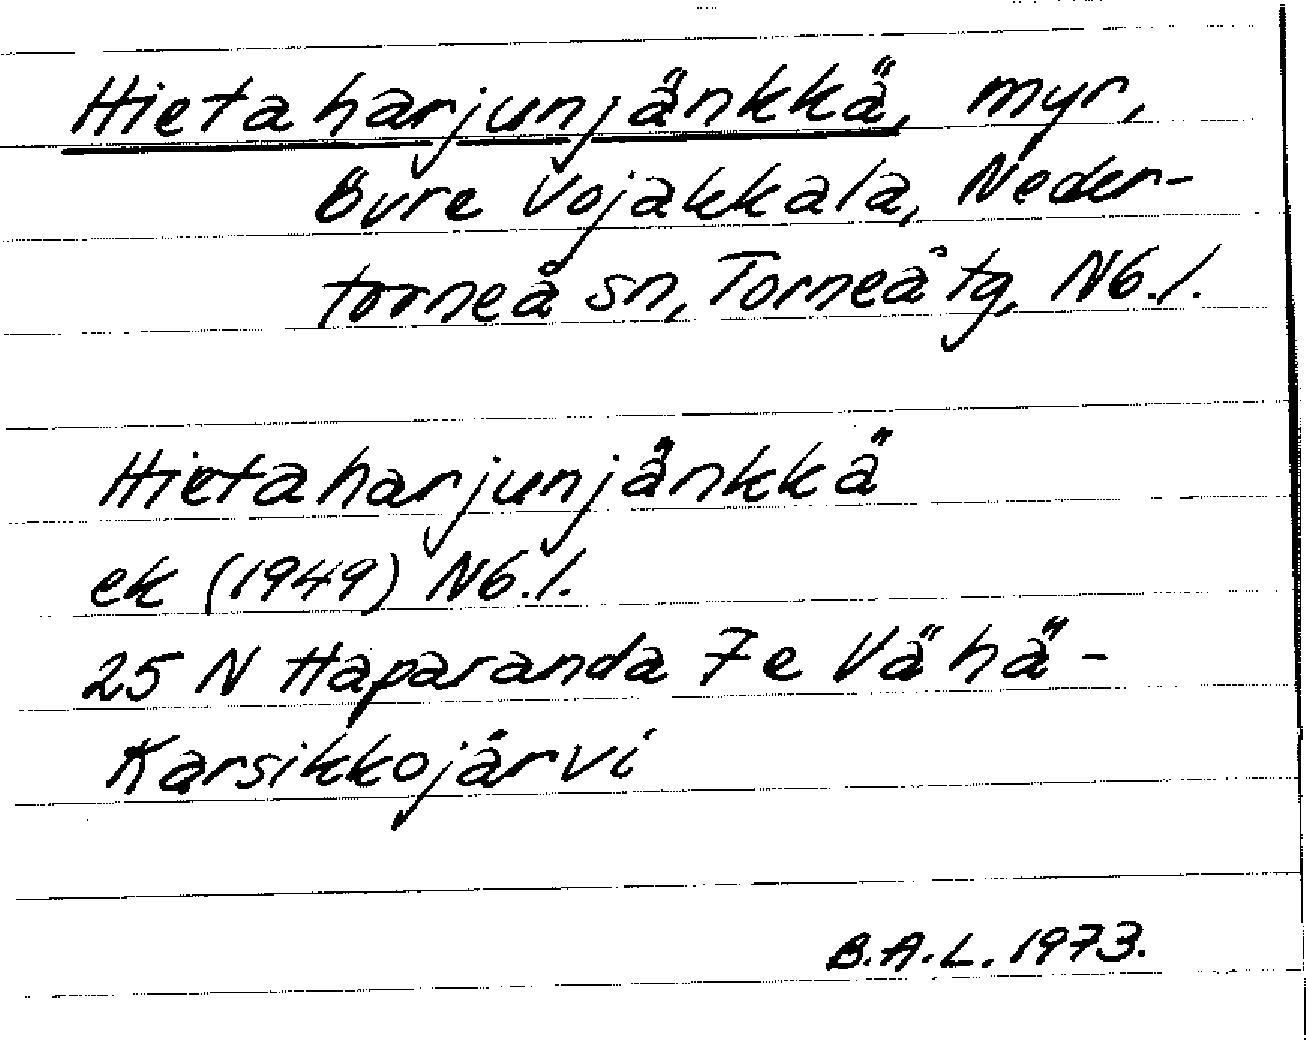 Hietaharjunjänkkä, myr,
Övre Vojakkala, Neder-
torneå sn, Torneå tg, Nb.l.
Hietaharjunjänkkä
ek (1949) Nb.l.
25 N Haparanda 7e Vähä-
Karsikkojärvi
B.A.L. 1973.